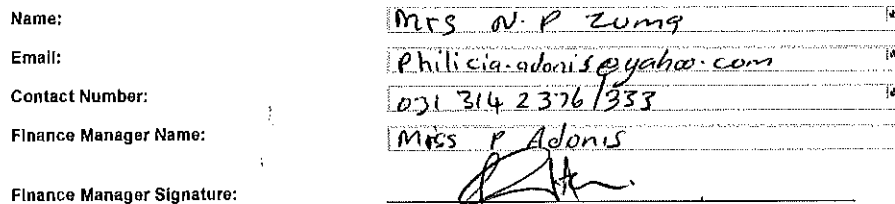 Name: Mrs N. P Zuma
Email: Philicia.adonis@yahoo.com
Contact Number: 031 314 2376/333
Finance Manager Name: Miss P Adonis
Finance Manager Signature: